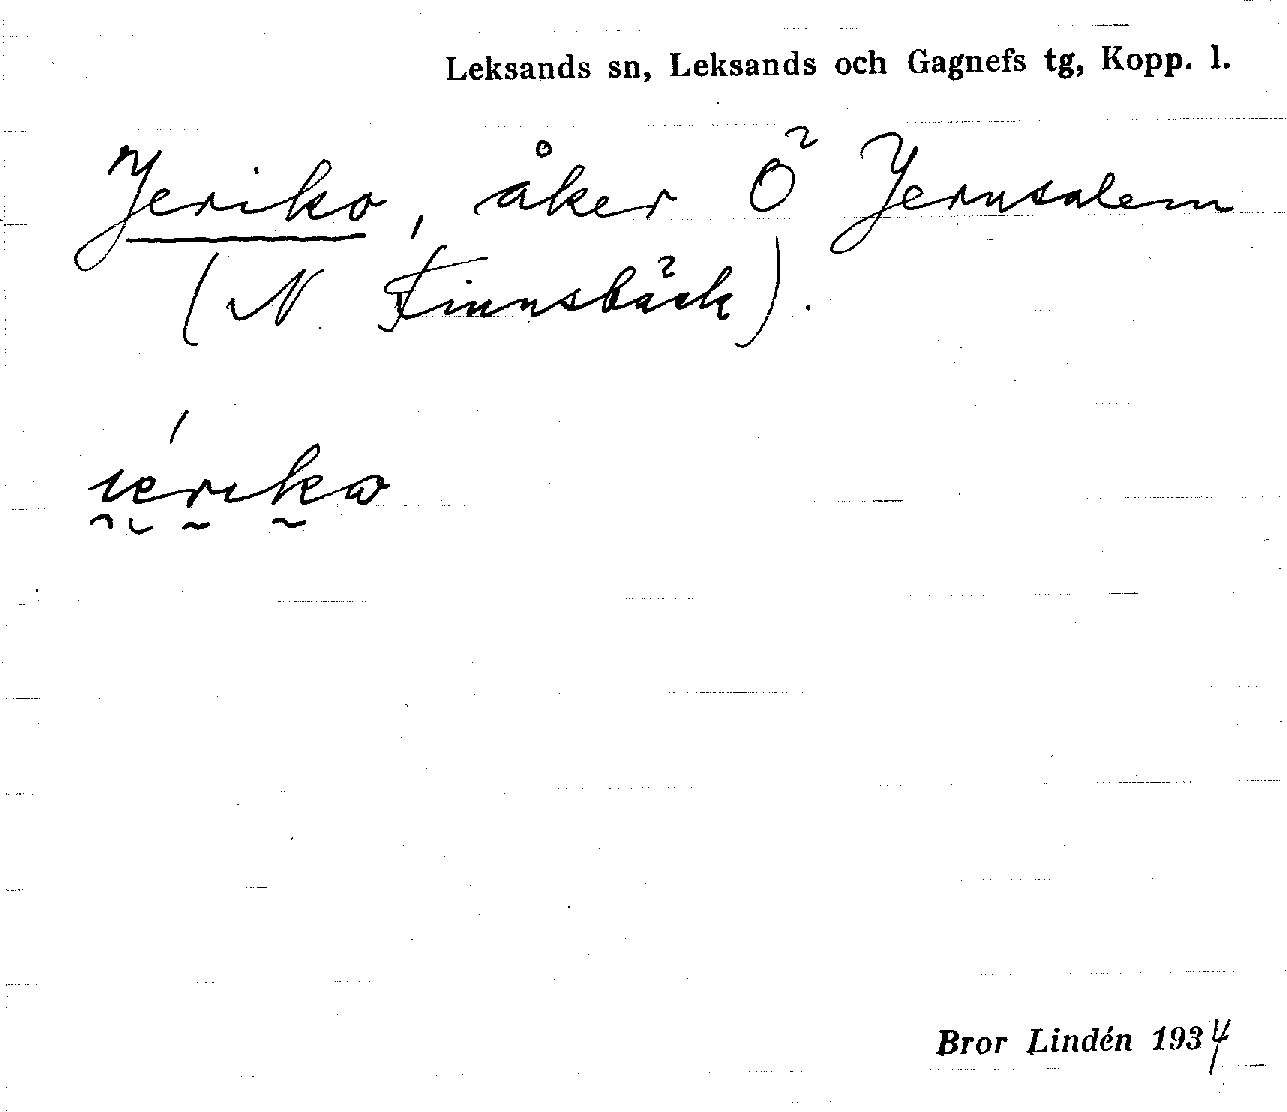 Leksands sn, Leksands och Gagnefs tg, Kopp. l.
Jeriko, åker Ö Jerusalem
(N Finnsbäck).
iériko
Bror Lindén 1934